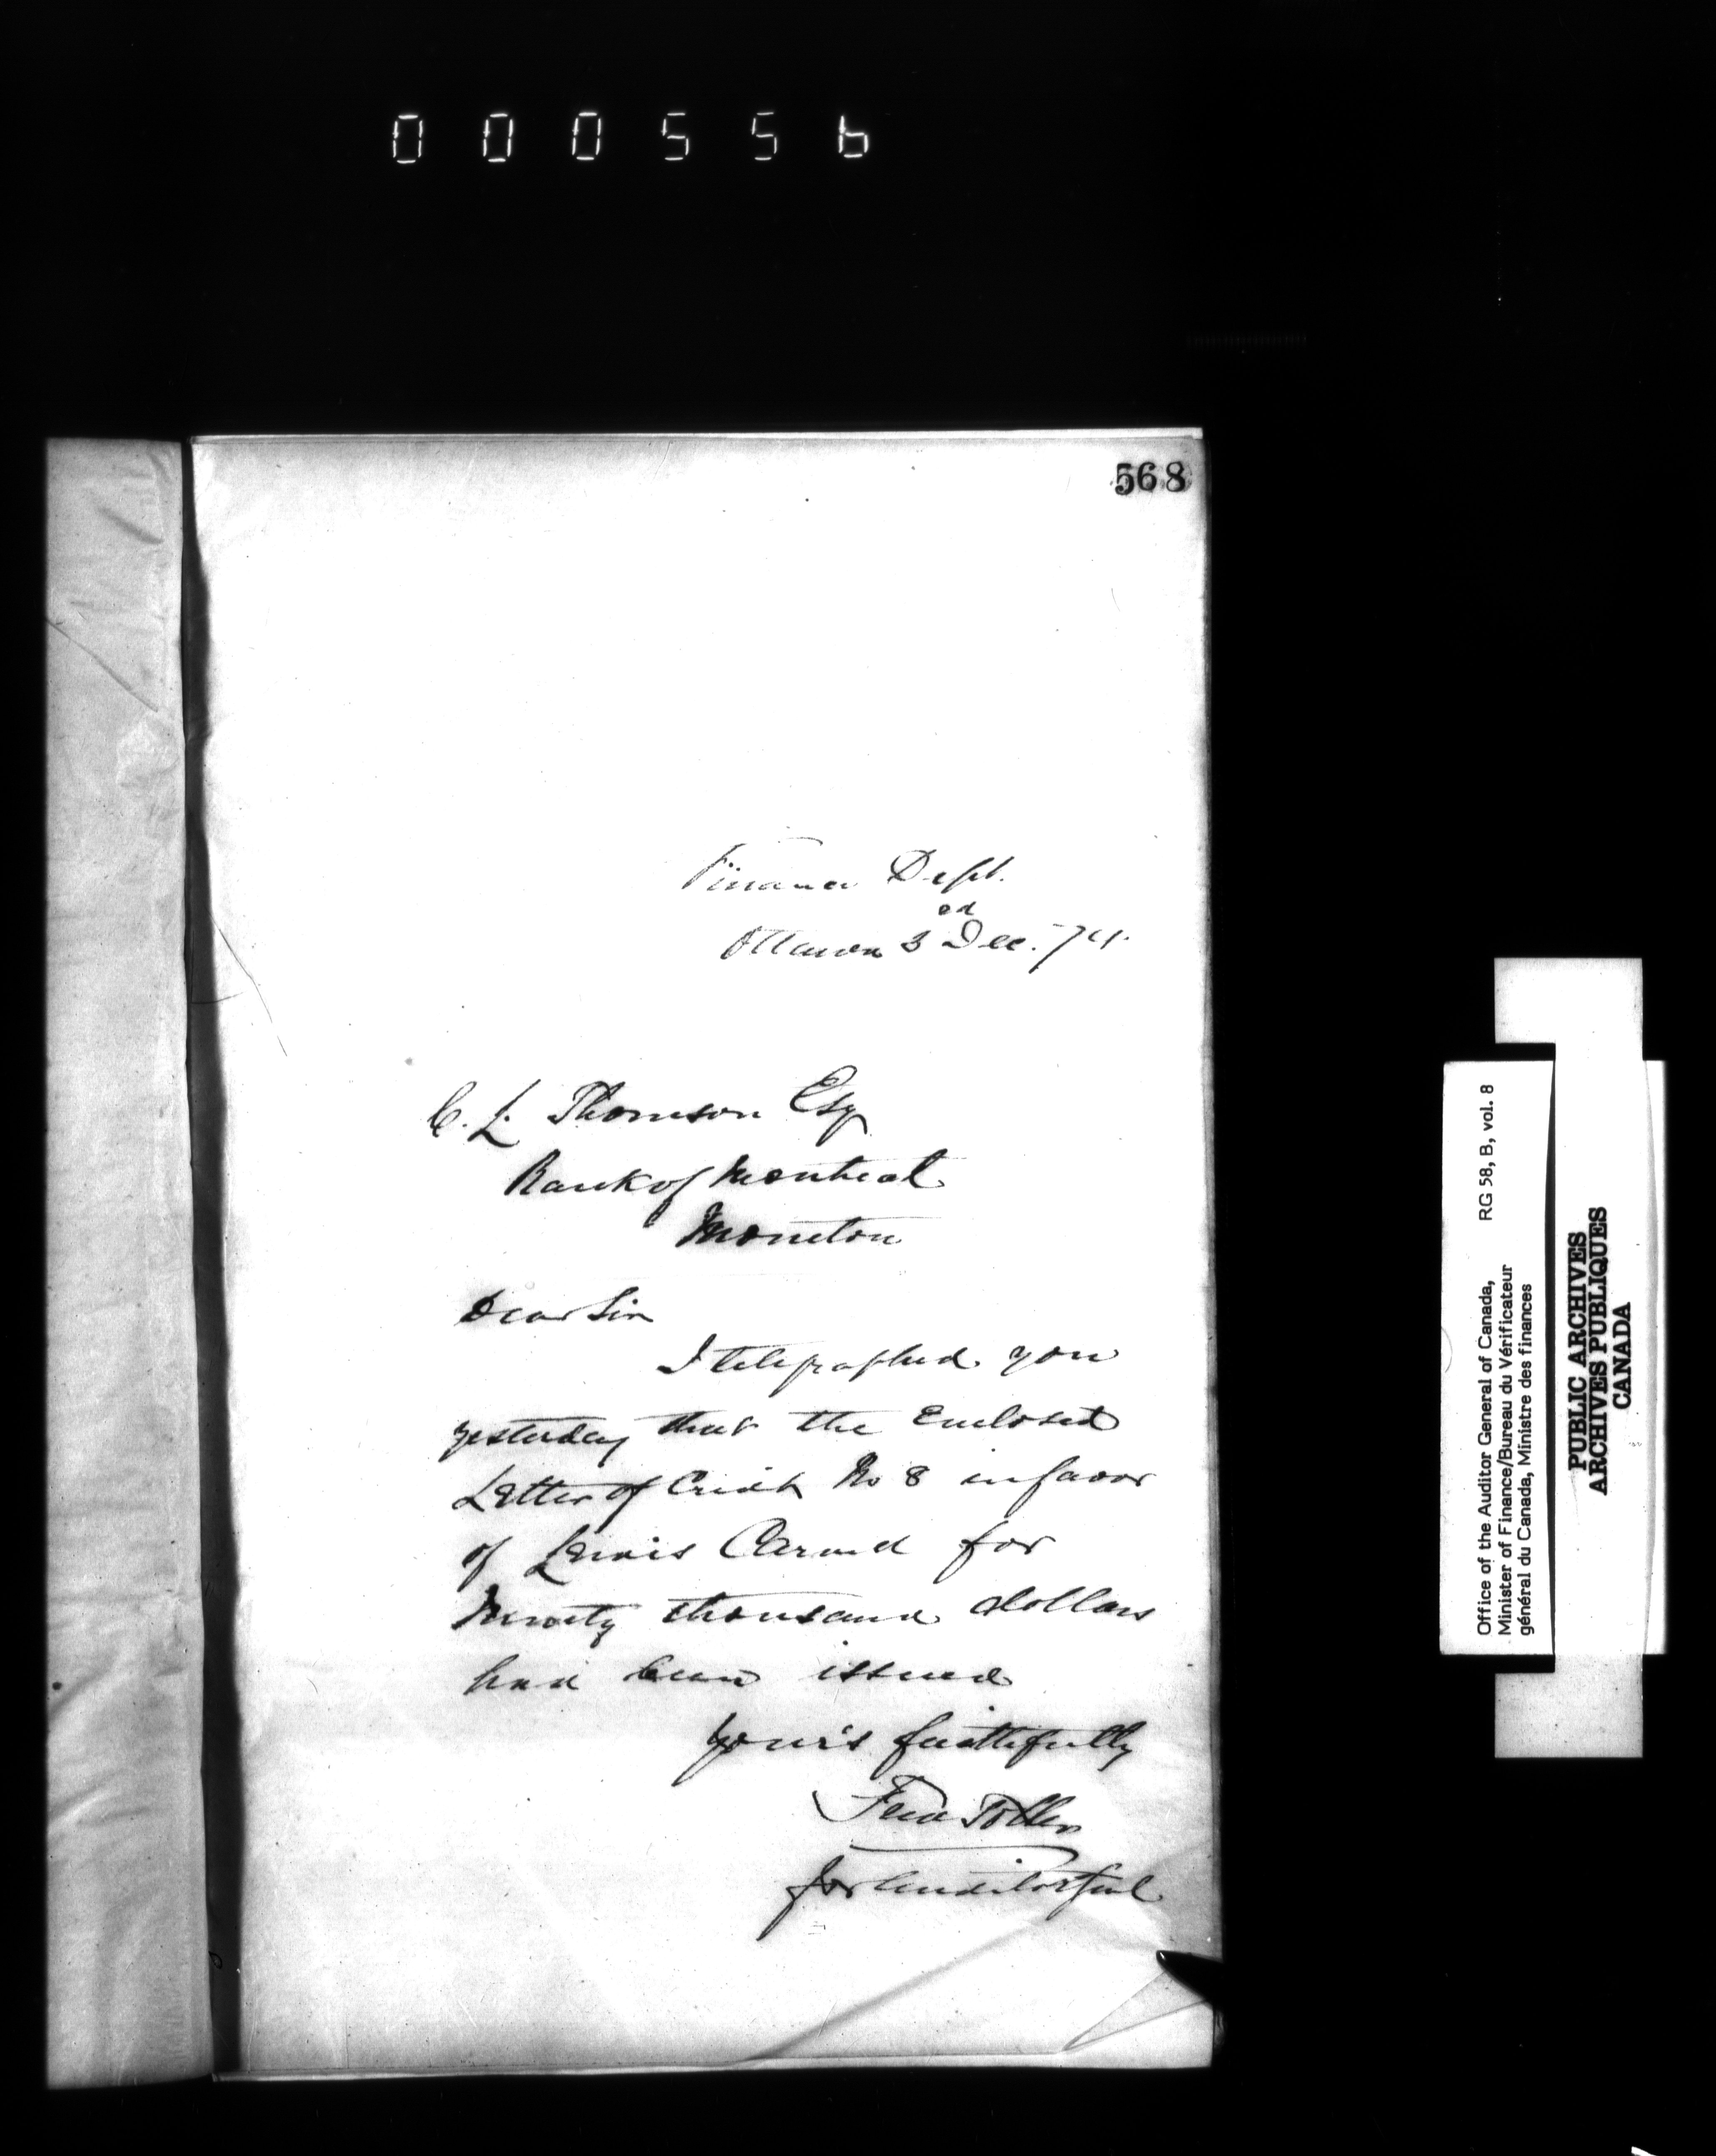 000556
568
Finance Dept.
Ottawa 3rd Dec. 74.
C. L. Thomson Esq
Bank of Montreal
Moncton
Dear Sir
I telegraphed you
yesterday that the Enclosed
Letter of Credit No 8 in favor
of Lewis Carvell for
Ninety thousand dollars
had been issued
Yours faithfully
Fred Toller
for Auditor Genl
Office of the Auditor General of Canada, RG 58, B, vol. 8
Minister of Finance/Bureau du Vérificateur
général du Canada, Ministre des finances
PUBLIC ARCHIVES
ARCHIVES PUBLIQUES
CANADA